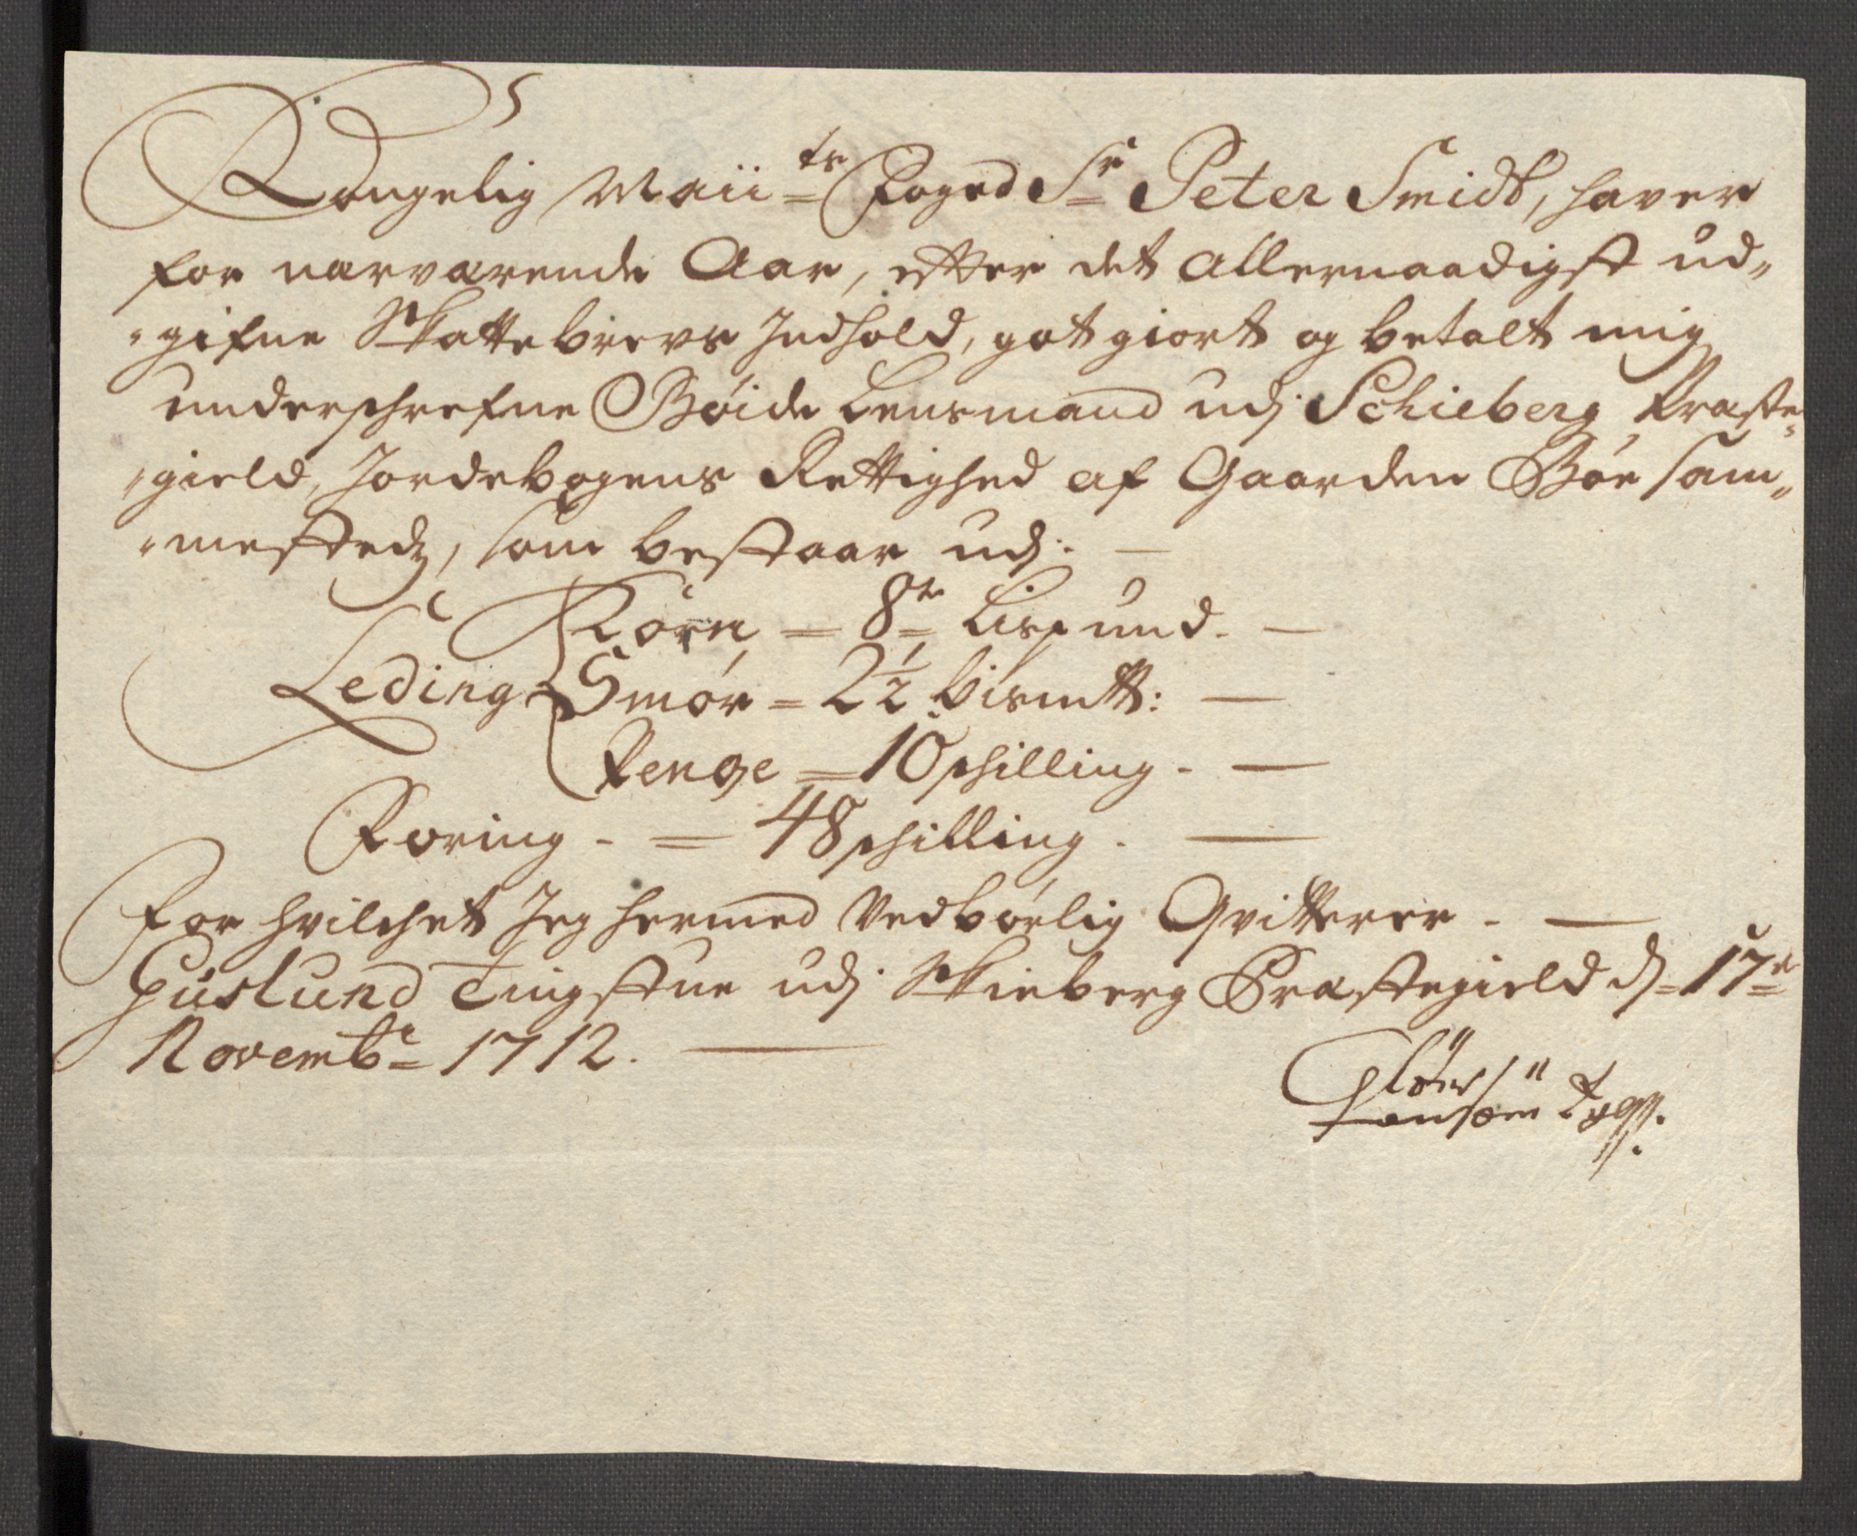 Kongelig Maiits Foged Sr Peter Smidt, haver
for narvarende Aar, effter det allernaadigst ud„
„gifne Skattebrevs Indhold, got giort og betalt mig
underschrefne Böide Lensmand udj Schieberg Præste„
„gield, Jordebogens Rettighed af Gaarden Böe sam„
„mestedz, som bestaar udj. —
Korn = 8te Lispund. —
Leding Smör = 2½ bismtt: —
Penge = 10 schilling. —
Foring. = 48 schilling. —
For hvilchet Jeg hermed vedbörlig Qvitterer. —
Huslund Tingstue udj Skieberg Prastegield d. 17de
Novembr 1712. —